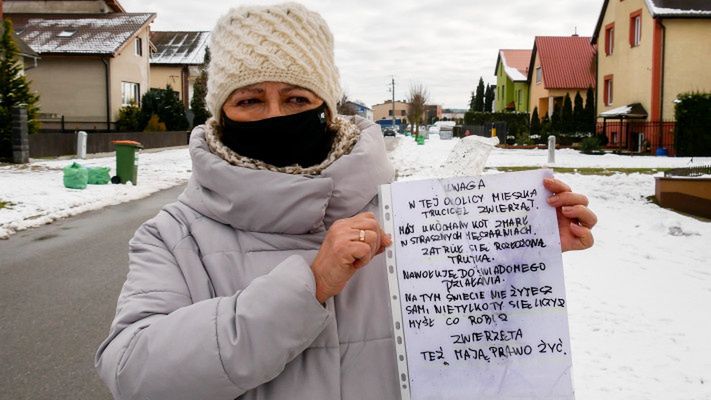 UWAGA
W TEJ OKOLICY MIESZKA
TRUCICIEL ZWIERZĄT.
MÓJ UKOCHANY KOT ZMARŁ
W STRASZNYCH MĘCZARNIACH.
ZATRUŁ SIĘ ROZŁOŻONĄ
TRUTKĄ.
NAWOŁUJĘ DO ŚWIADOMEGO
DZIAŁANIA.
NA TYM ŚWIECIE NIE ŻYJESZ
SAM! NIETYLKO TY SIĘ LICZYSZ
MYŚL CO ROBISZ
ZWIERZĘTA
TEŻ MAJĄ PRAWO ŻYĆ.